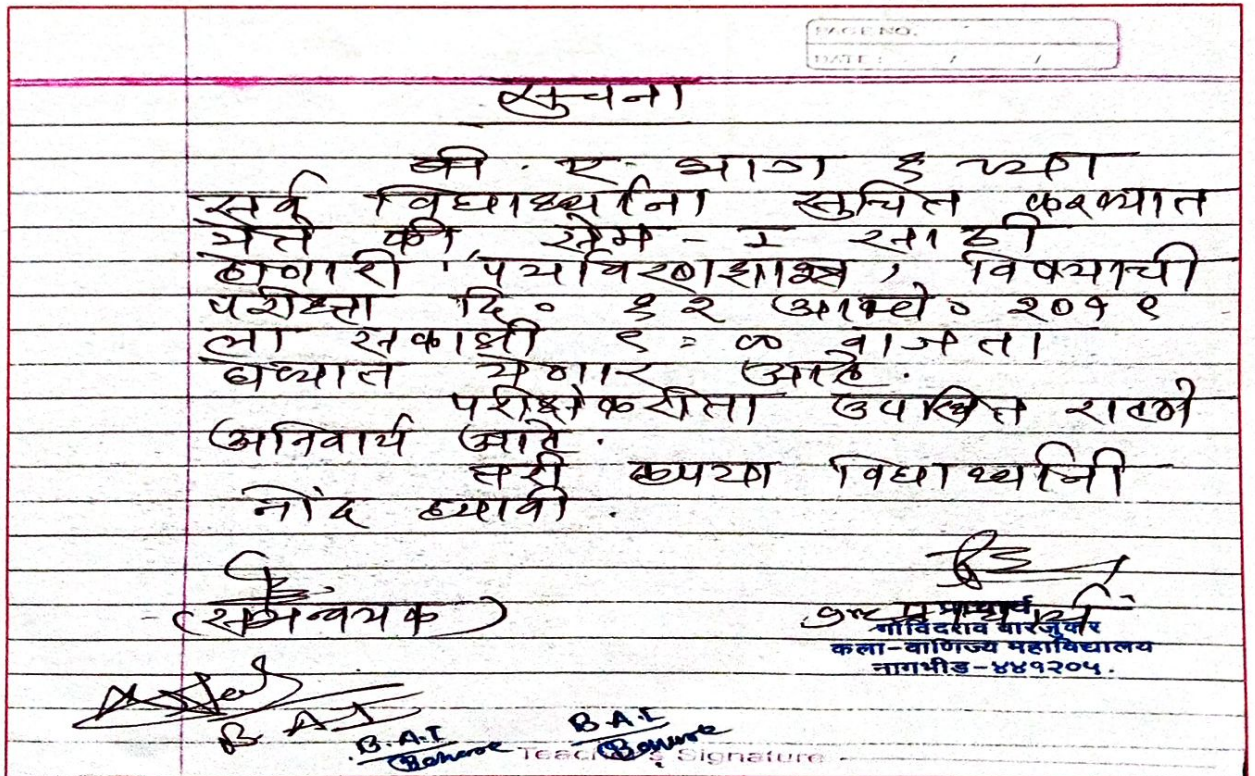 PAGE NO.
DATE : / /
सुचना
बी. ए. भाग १ च्या
सर्व विद्यार्थ्यांना सुचित करण्यात
येते की, सेम - I साठी
होणारी 'पर्यावरणशास्त्र' विषयाची
परीक्षा दि. १२ आक्टो. २०१९
ला सकाळी ९:०० वाजता
घेण्यात येणार आहे.
परीक्षेकरीता उपस्थित राहणे
अनिवार्य आहे.
तरी कृपया विद्यार्थ्यांनी
नोंद घ्यावी.
(समन्वयक)
प्राचार्य
गोविंदराव वारजुकर
कला-वाणिज्य महाविद्यालय
नागभीड-४४१२०५.
B. A I
B.A.I
B.A.I
Teacher's Signature